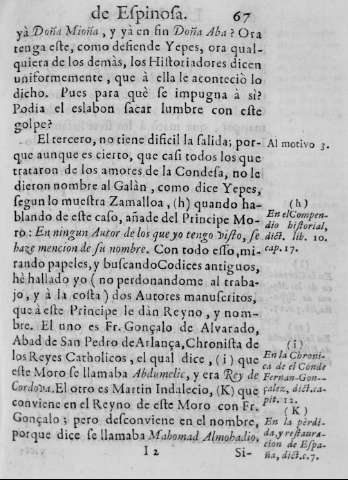 de Espinosa. 67
yà Doña Miona, y yà en fin Doña Aba? Ora
tenga este, como defiende Yepes, ora qual-
quiera de los demàs, los Historiadores dicen
uniformemente, que à ella le aconteciò lo
dicho. Pues para què se impugna à sì?
Podia el eslabon sacar lumbre con este
golpe?
El tercero, no tiene dificil la salida; por-
que aunque es cierto, que casi todos los que
trataron de los amores de la Condesa, no le
dieron nombre al Galàn, como dice Yepes,
segun lo muestra Zamalloa, (h) quando ha-
blando de este caso, añade del Principe Mo-
ro: En ningun Autor de los que yo tengo visto, se
haze mencion de su nombre. Con todo esso, mi-
rando papeles, y buscando Codices antiguos,
hè hallado yo (no perdonandome al traba-
jo, y à la costa) dos Autores manuscritos,
que à este Principe le dàn Reyno, y nom-
bre. El uno es Fr. Gonçalo de Alvarado,
Abad de San Pedro de Arlança, Chronista de
los Reyes Catholicos, el qual dice, (i) que
este Moro se llamaba Abdumelic, y era Rey de
Cordova. El otro es Martin Indalecio, (K) que
conviene en el Reyno de este Moro con Fr.
Gonçalo; pero desconviene en el nombre,
porque dice se llamaba Mahomad Almohadio.
I 2 Si-
Al motivo 3.
(h)
En el Compen-
dio historial,
dict. lib. 10.
cap. 17.
(i)
En la Chroni-
ca de el Conde
Fernan-Gon-
çalez, dict. ca-
pit. 12.
(K)
En la pèrdi-
da, y restaura-
cion de Espa-
ña, dict. c. 7.